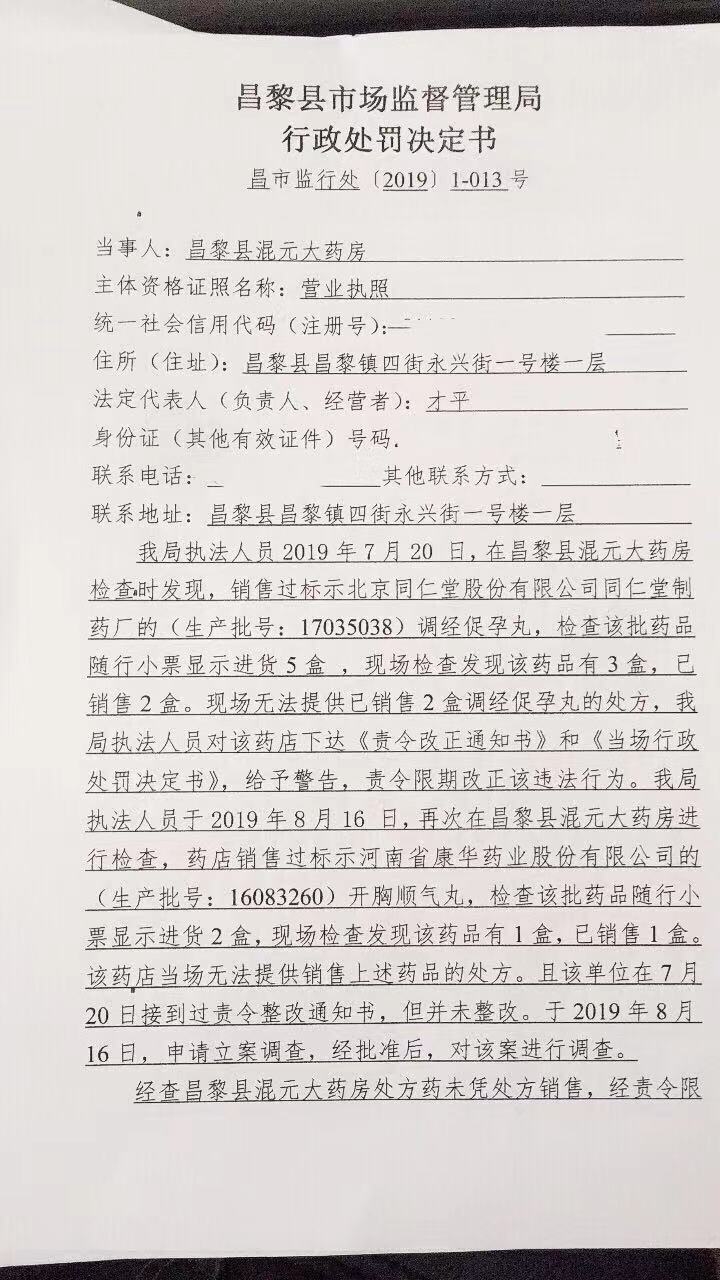 昌黎县市场监督管理局
行政处罚决定书
昌市监行处〔2019〕1-013号
当事人：昌黎县混元大药房
主体资格证照名称：营业执照
统一社会信用代码（注册号）：
住所（住址）：昌黎县昌黎镇四街永兴街一号楼一层
法定代表人（负责人、经营者）：才平
身份证（其他有效证件）号码.
联系电话：　其他联系方式：
联系地址：昌黎县昌黎镇四街永兴街一号楼一层
我局执法人员2019年7月20日，在昌黎县混元大药房
检查时发现，销售过标示北京同仁堂股份有限公司同仁堂制
药厂的（生产批号：17035038）调经促孕丸，检查该批药品
随行小票显示进货5盒，现场检查发现该药品有3盒，已
销售2盒。现场无法提供已销售2盒调经促孕丸的处方，我
局执法人员对该药店下达《责令改正通知书》和《当场行政
处罚决定书》，给予警告，责令限期改正该违法行为。我局
执法人员于2019年8月16日，再次在昌黎县混元大药房进
行检查，药店销售过标示河南省康华药业股份有限公司的
（生产批号：16083260）开胸顺气丸，检查该批药品随行小
票显示进货2盒，现场检查发现该药品有1盒，已销售1盒。
该药店当场无法提供销售上述药品的处方。且该单位在7月
20日接到过责令整改通知书，但并未整改。于2019年8月
16日，申请立案调查，经批准后，对该案进行调查。
经查昌黎县混元大药房处方药未凭处方销售，经责令限